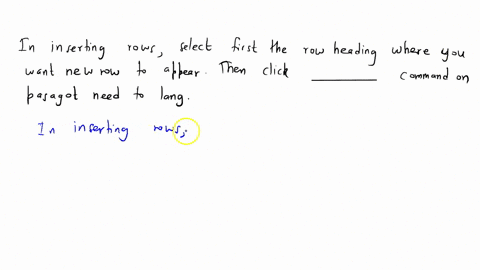 In inserting rows, select first the row heading where you
want new row to appear. Then click ________ command on
pasagot need to lang.
In inserting rows,